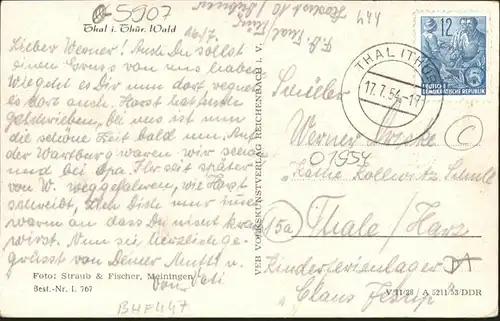 5907
Thal i. Thür. Wald
16/7.
444
Lieber Werner! Auch Du sollst
einen Gruss von uns haben.
Wie geht es Dir nun dort, regnet
es dort auch. Horst hat heute
geschrieben, bei uns ist nun
die schöne Zeit bald um. Auf
der Wartburg waren wir
und bei Opa. Ihr seit später
von W. weggefahren, wie Horst
schreibt, zieh Dich nur
warm an dass Du nicht krank
wirst. Nun sei herzlichst ge-
grüsst von Deiner Mutti u.
von Vati
Foto: Straub & Fischer, Meiningen
Best.-Nr. I. 767
BHF447
VEB VOLKSKUNSTVERLAG REICHENBACH I. V.
THAL (THÜR)
17.7.54-17
12
DEUTSCHE DEMOKRATISCHE REPUBLIK
Schüler
Werner
01954
C
Käthe Kollwitz Schule
15a
Thale / Harz
Kinderferienlager
"Claus
V/11/28 / A 5211/53/DDR